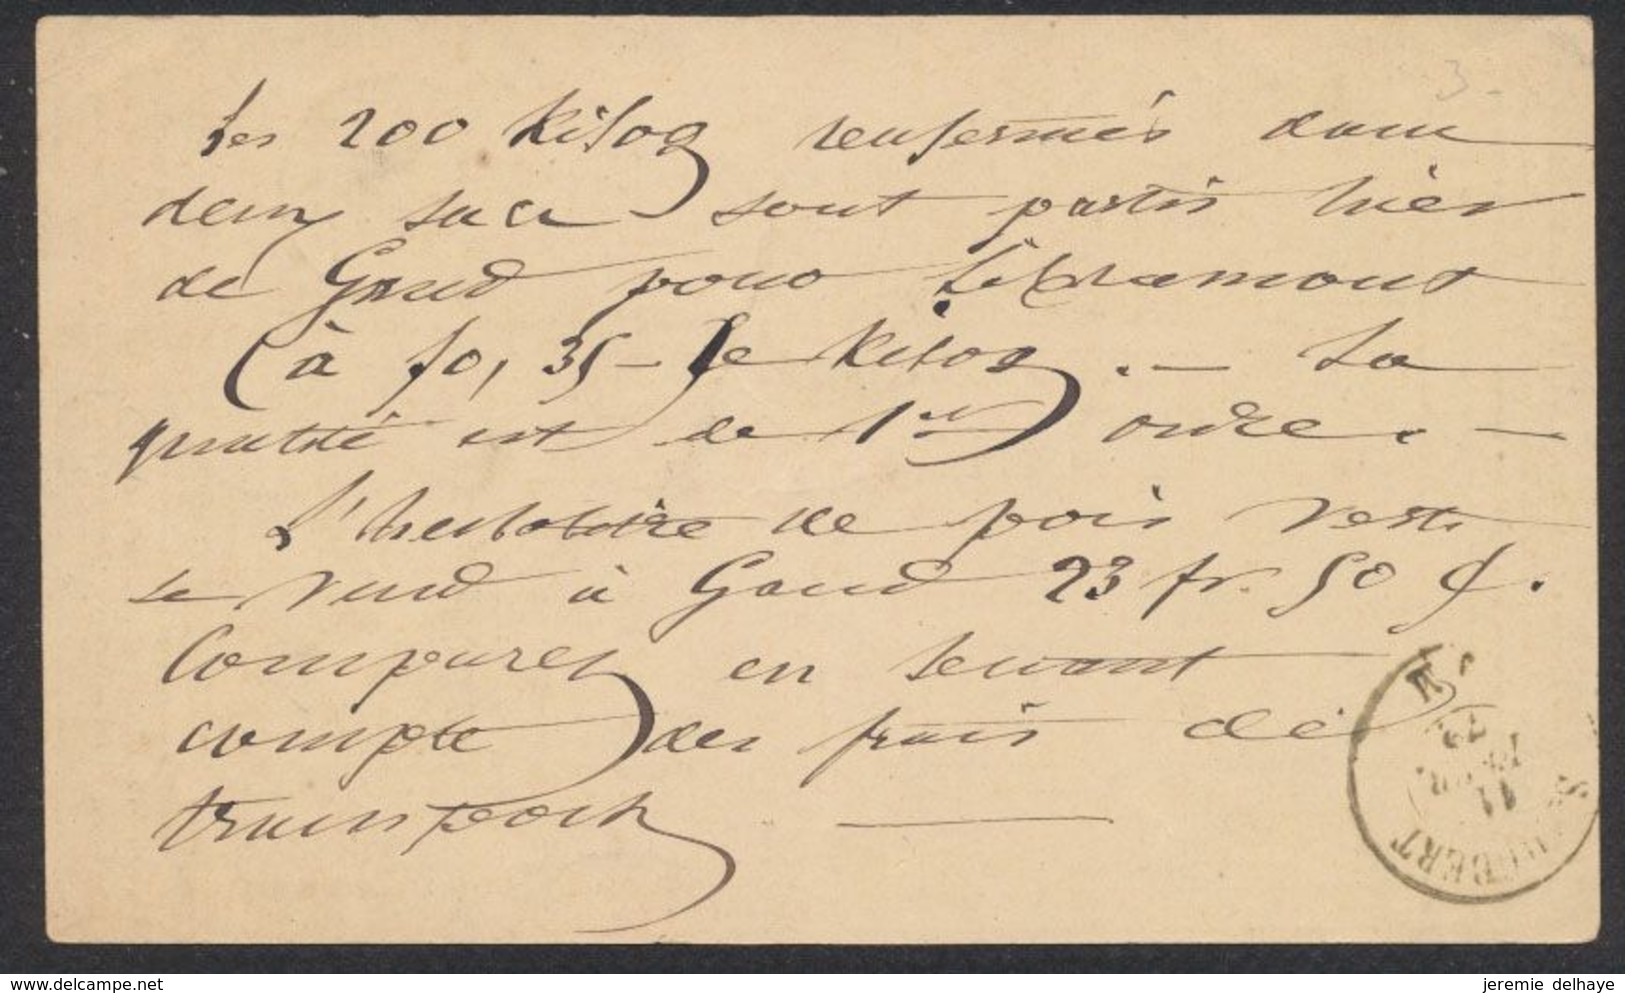 3-
Les 200 Kilog renfermés dans
deux sacs sont partis hier
de Gand pour Libramont
(à f0,35 - le Kilog). - La
qualité est de 1er ordre. -
L'hectolitre de pois verts
se vend à Gand 23 fr. 50 c.
Comparez en tenant
compte des frais de
transport
ST HUBERT
11
FEVR
79
delcampe.net
jeremie delhaye